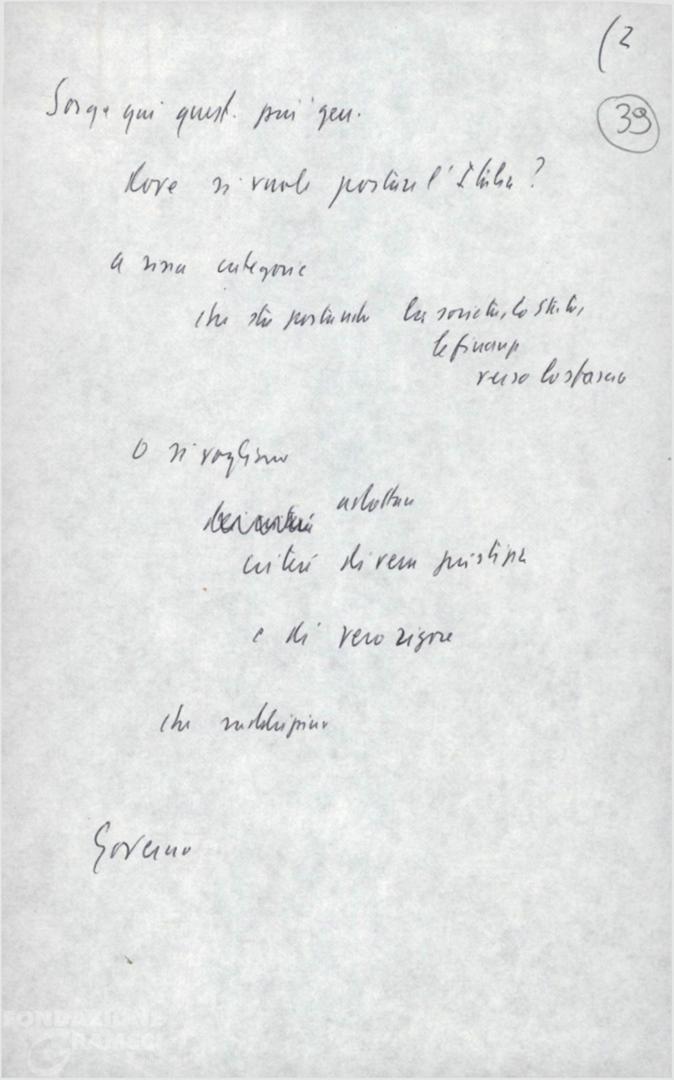 (2
39
Sorge qui quest. più gen.
dove si vuole portare l'Italia?
a
categorie
che sta portando la società, lo Stato,
le finanze
verso lo sfascio
O si vogliono
adottare
criteri di vera giustizia
e di vero rigore
che
Governo
FONDAZIONE
GRAMSCI